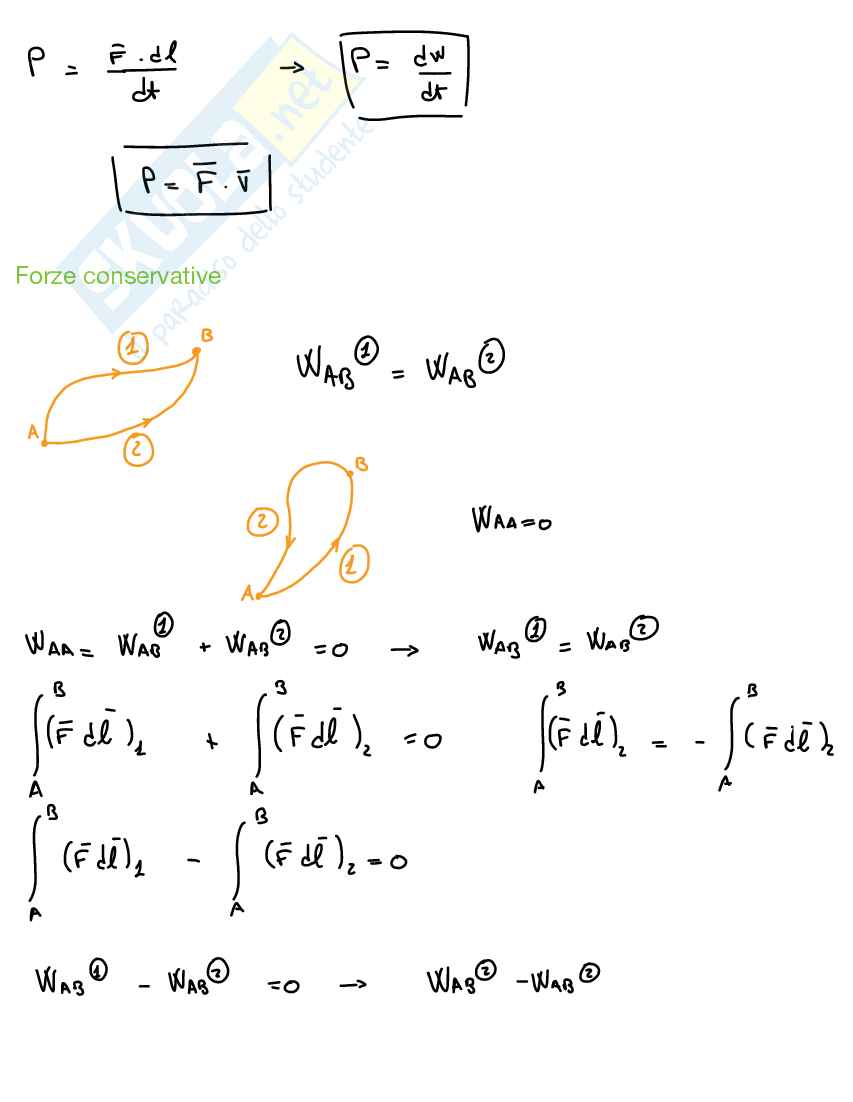 P = F̅ · dl / dt → P = dw / dt
P = F̅ · v̅
SKUOLA.net
il paradiso dello studente
Forze conservative
① B
A ②
W_AB^① = W_AB^②
B
②
①
A
W_AA = 0
W_AA = W_AB^① + W_AB^② = 0 → W_AB^① = W_AB^②
∫_A^B (F̅ dl̅)_1 + ∫_A^B (F̅ dl̅)_2 = 0 ∫_A^B (F̅ dl̅)_2 = - ∫_A^B (F̅ dl̅)_2
∫_A^B (F̅ dl̅)_1 - ∫_A^B (F̅ dl̅)_2 = 0
W_AB^① - W_AB^② = 0 → W_AB^② - W_AB^②